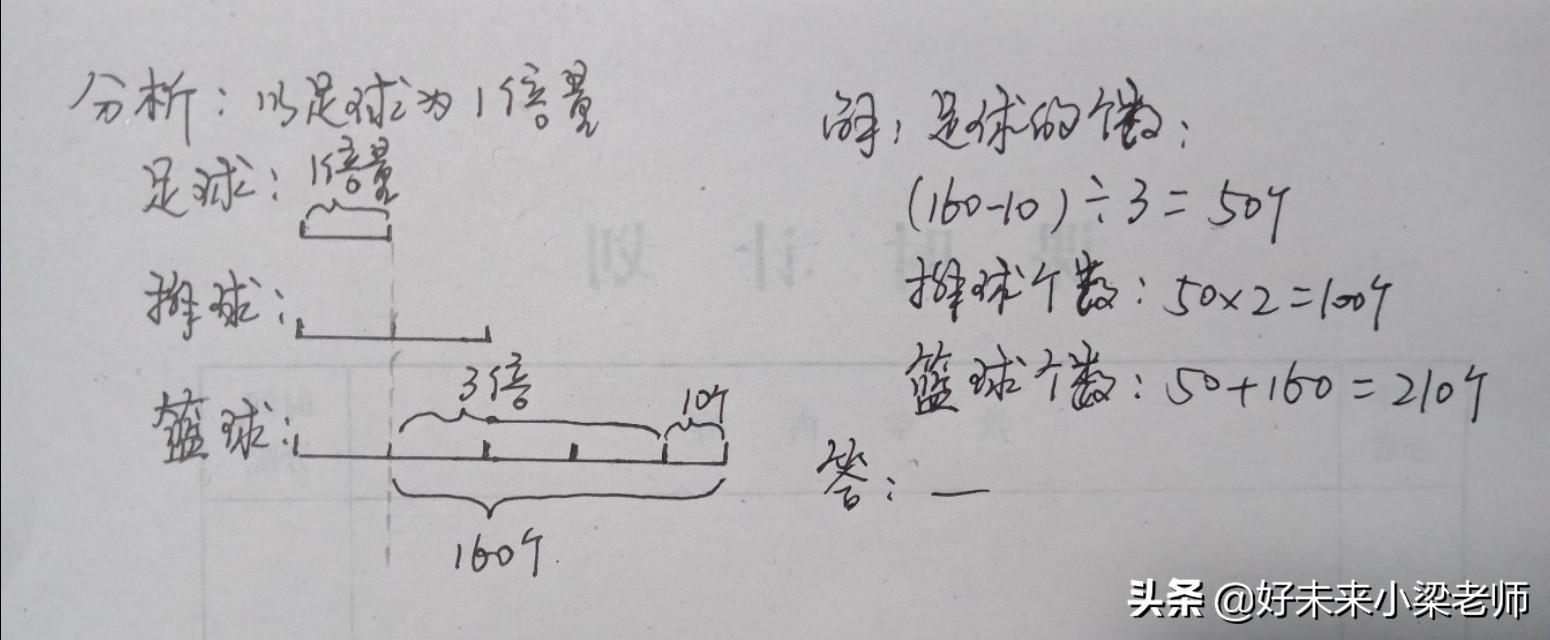 分析：以足球为1倍量
足球：1倍量
排球：
篮球：
3倍
10个
160个
解：足球的个数：
(160-10)÷3=50个
排球个数：50×2=100个
篮球个数：50+160=210个
答：—
课时计划
头条 @好未来小梁老师